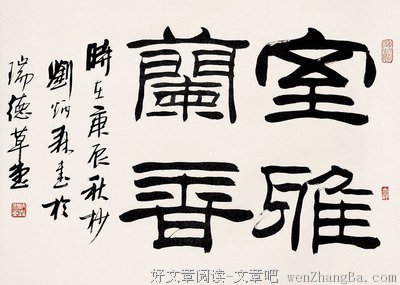 室雅
蘭香
時在庚辰秋杪
劉炳森書於
瑞德草堂
好文章阅读-文章吧 wenZhangBa.com